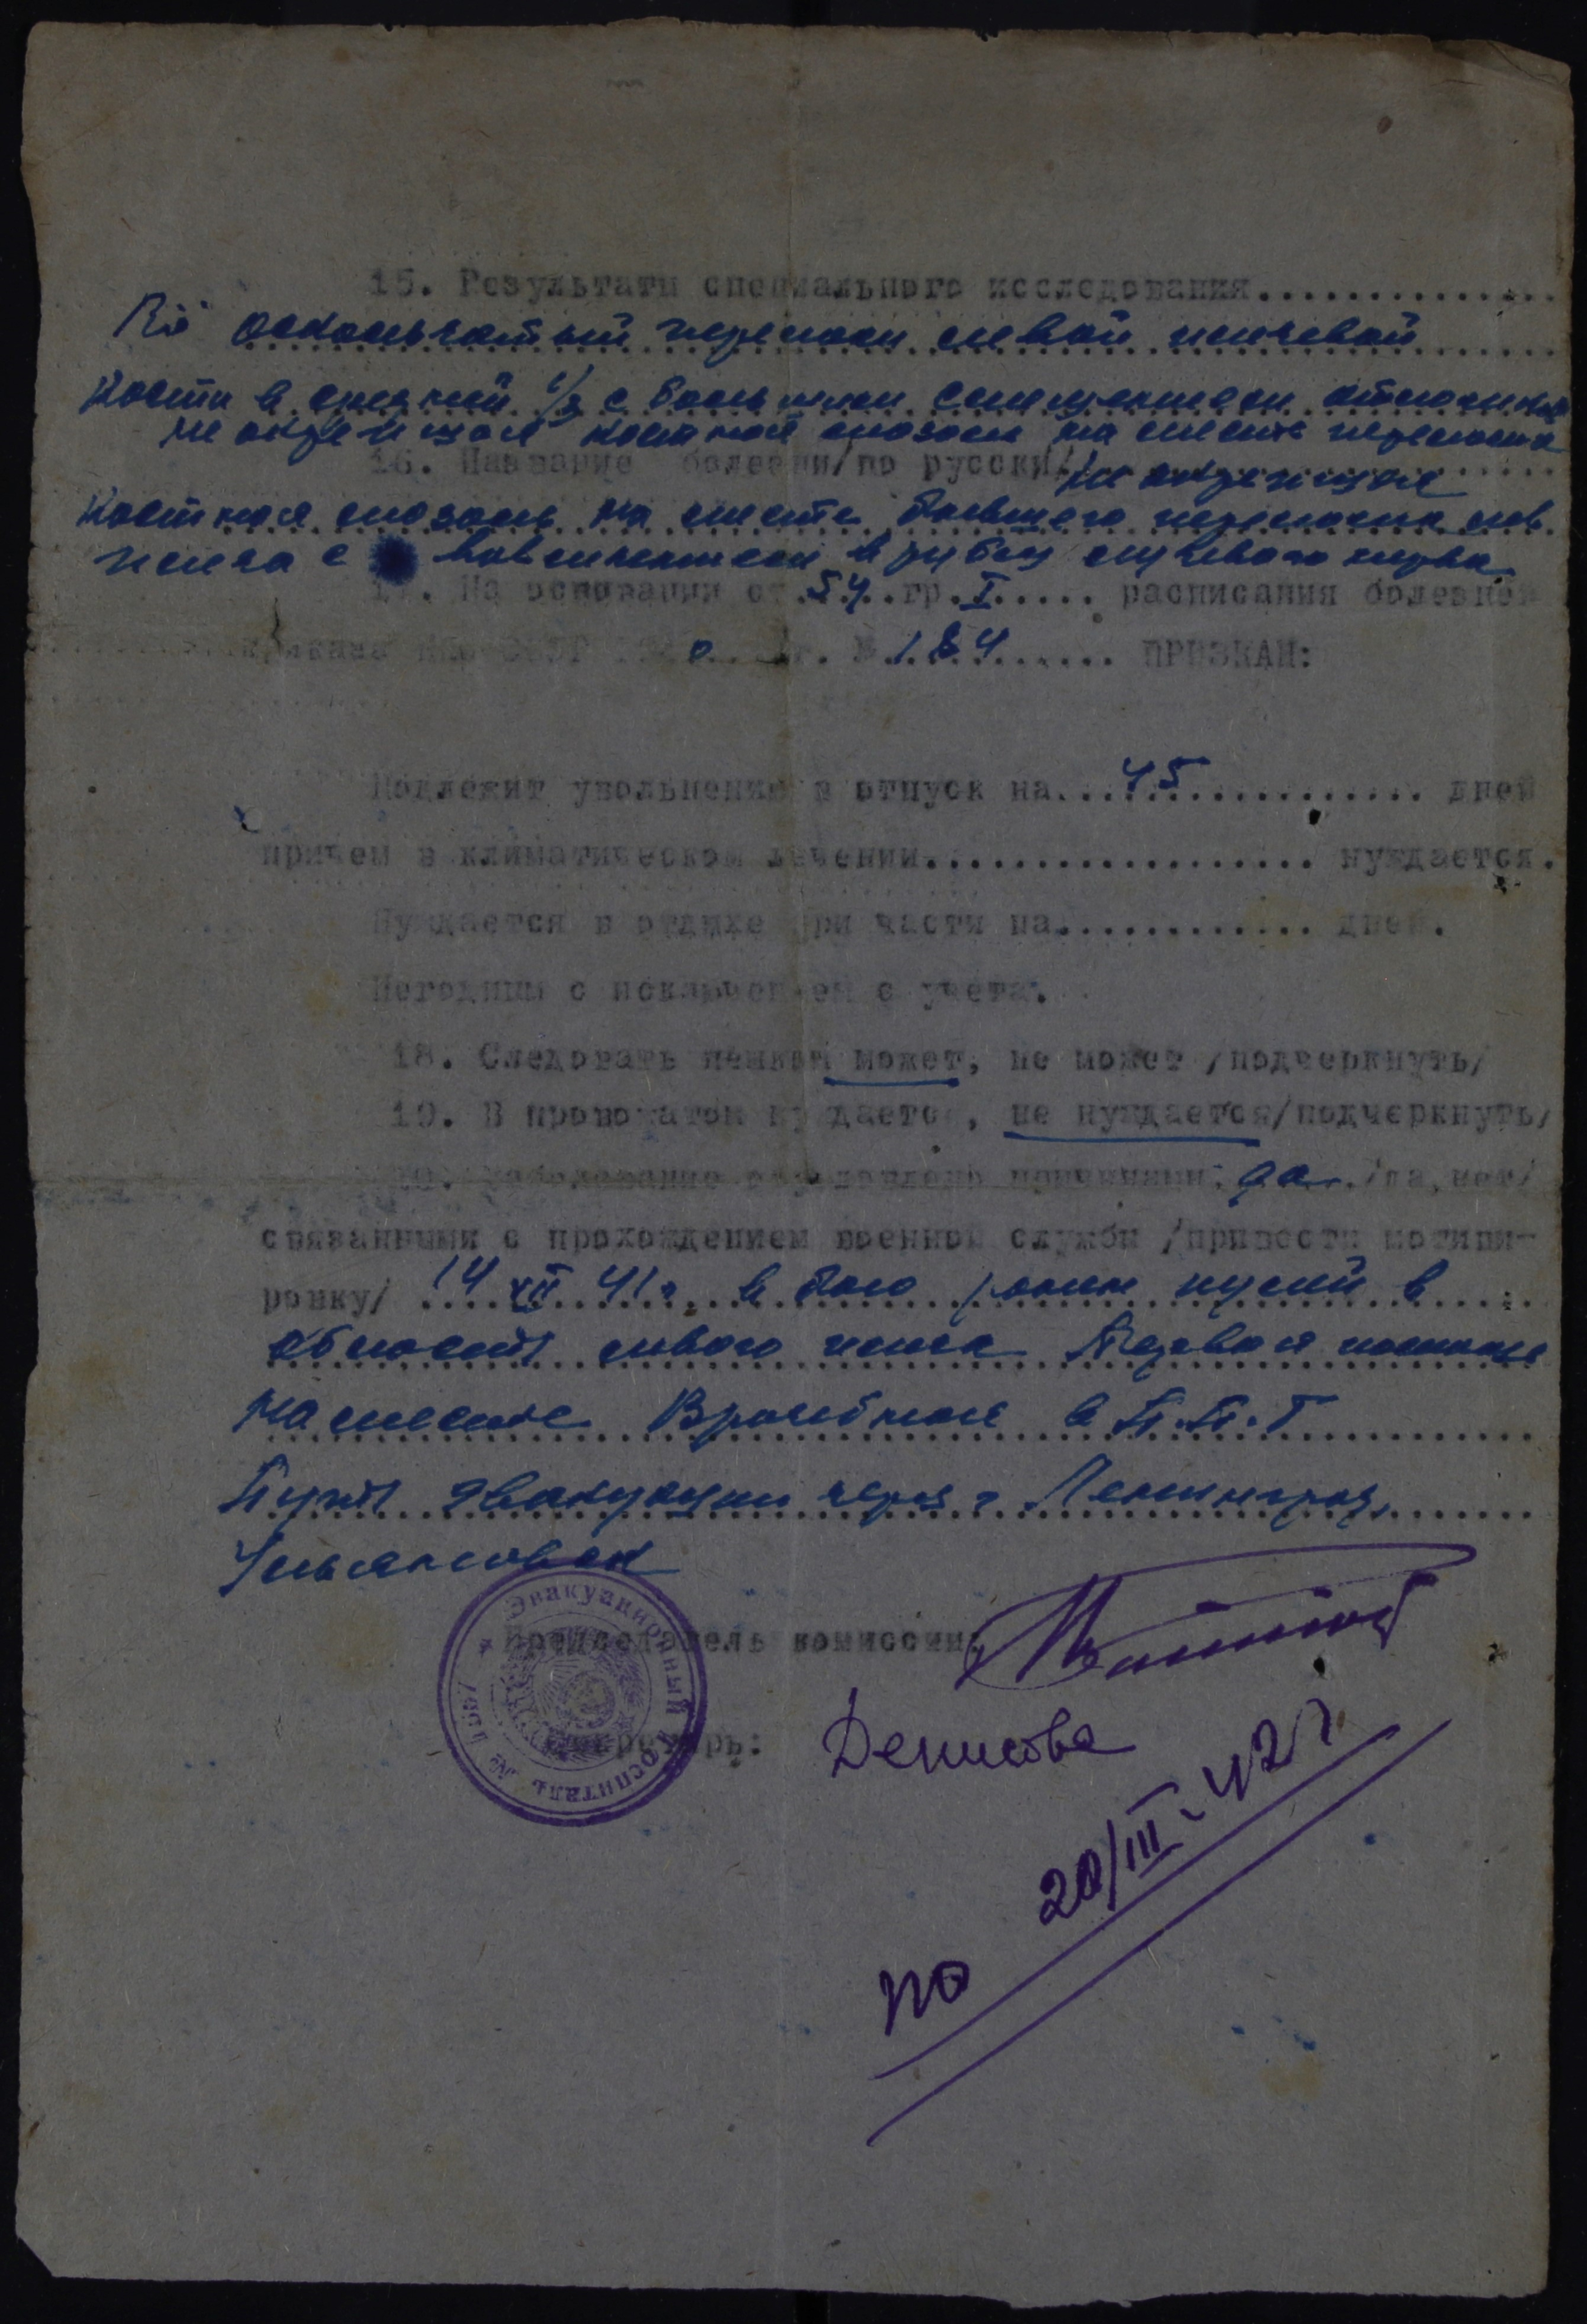 15. Результаты специального исследования...............
Rö оскольчатый перелом левой плечевой
кости в средней 1/3 с большим смещением отломков
не окрепшая костная мозоль на месте перелома
16. Название болезни/по русски/ Не окрепшая
костная мозоль на месте бывшего перелома лев.
плеча с вовлечением в рубец лучевого нерва
17. На основании ст. 54 гр. I..... расписания болезней
приказа НКО СССР 1940 г. № 184........ ПРИЗНАН:
Подлежит увольнению в отпуск на 45 .................. дней
причем в климатическом лечении.................. нуждается.
Нуждается в отдыхе при части на............ дней.
Негодным с исключением с учета.
18. Следовать пешком может, не может /подчеркнуть/
19. В провожатом нуждается, не нуждается/подчеркнуть/
20. Заболевание обусловлено причинами: да /да, нет/
связанными с прохождением военной службы /привести мотиви-
ровку/ 14 XII 41 г. в бою ранен пулей в
область левого плеча Первая помощь
на месте Врачебная в П.П.Г
Путь эвакуации через г Ленинград,
Ульяновск
Председатель комиссии:
Секретарь: Денисова
Эвакуационный госпиталь №
по 20/III-42 г